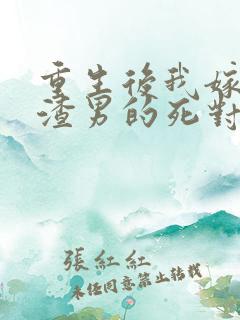 重生後我嫁
渣男的死對
張紅紅
未任同意禁止转载